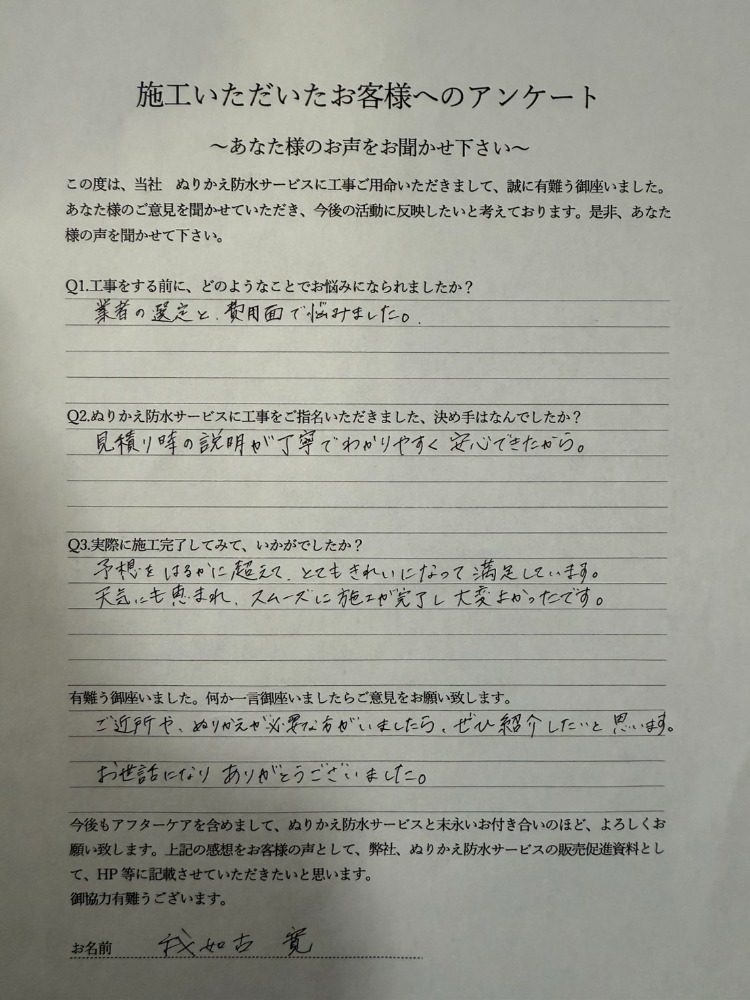 施工いただいたお客様へのアンケート
～あなた様のお声をお聞かせ下さい～
この度は、当社　ぬりかえ防水サービスに工事ご用命いただきまして、誠に有難う御座いました。
あなた様のご意見を聞かせていただき、今後の活動に反映したいと考えております。是非、あなた
様の声を聞かせて下さい。
Q1.工事をする前に、どのようなことでお悩みになられましたか？
業者の選定と、費用面で悩みました。
Q2.ぬりかえ防水サービスに工事をご指名いただきました、決め手はなんでしたか？
見積り時の説明が丁寧でわかりやすく安心できたから。
Q3.実際に施工完了してみて、いかがでしたか？
予想をはるかに超えて、とてもきれいになって満足しています。
天気にも恵まれ、スムーズに施工が完了し大変よかったです。
有難う御座いました。何か一言御座いましたらご意見をお願い致します。
ご近所や、ぬりかえが必要な方がいましたら、ぜひ紹介したいと思います。
お世話になりありがとうございました。
今後もアフターケアを含めまして、ぬりかえ防水サービスと末永いお付き合いのほど、よろしくお
願い致します。上記の感想をお客様の声として、弊社、ぬりかえ防水サービスの販売促進資料とし
て、HP 等に記載させていただきたいと思います。
御協力有難うございます。
お名前　我如古　寛